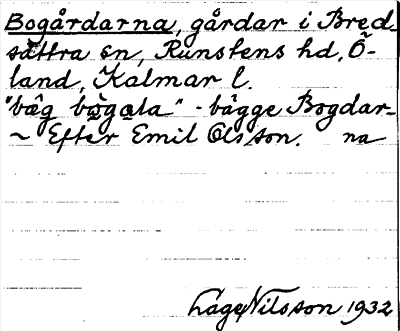 Bogårdarna, gårdar i Bred-
sättra sn, Runstens hd, Ö-
land, Kalmar l.
"båg bo̱ga̱la" - bägge Bogdar-
~ Efter Emil Olsson. na
Låge Nilsson 1932